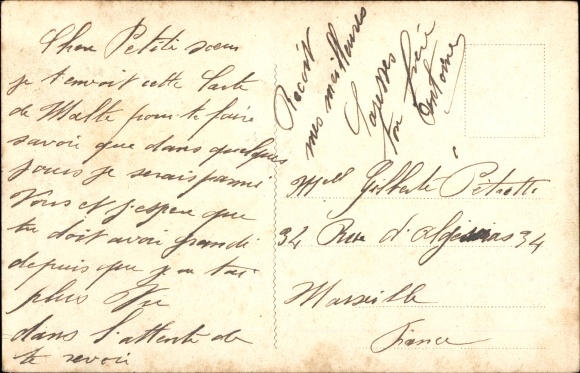 Cher Petite sœur
je t'envoit cette Carte
de Malte pour te faire
savoir que dans quelques
jours je serais parmi
Vous et j'espère que
tu doit avoir grandi
depuis que je
plus Vu
dans l'attente de
te revoir
Recoit
mes meilleures
Caresses
ton frère
Antoine
Mell Gilberte
34 Rue d'Algésiras 34
Marseille
France